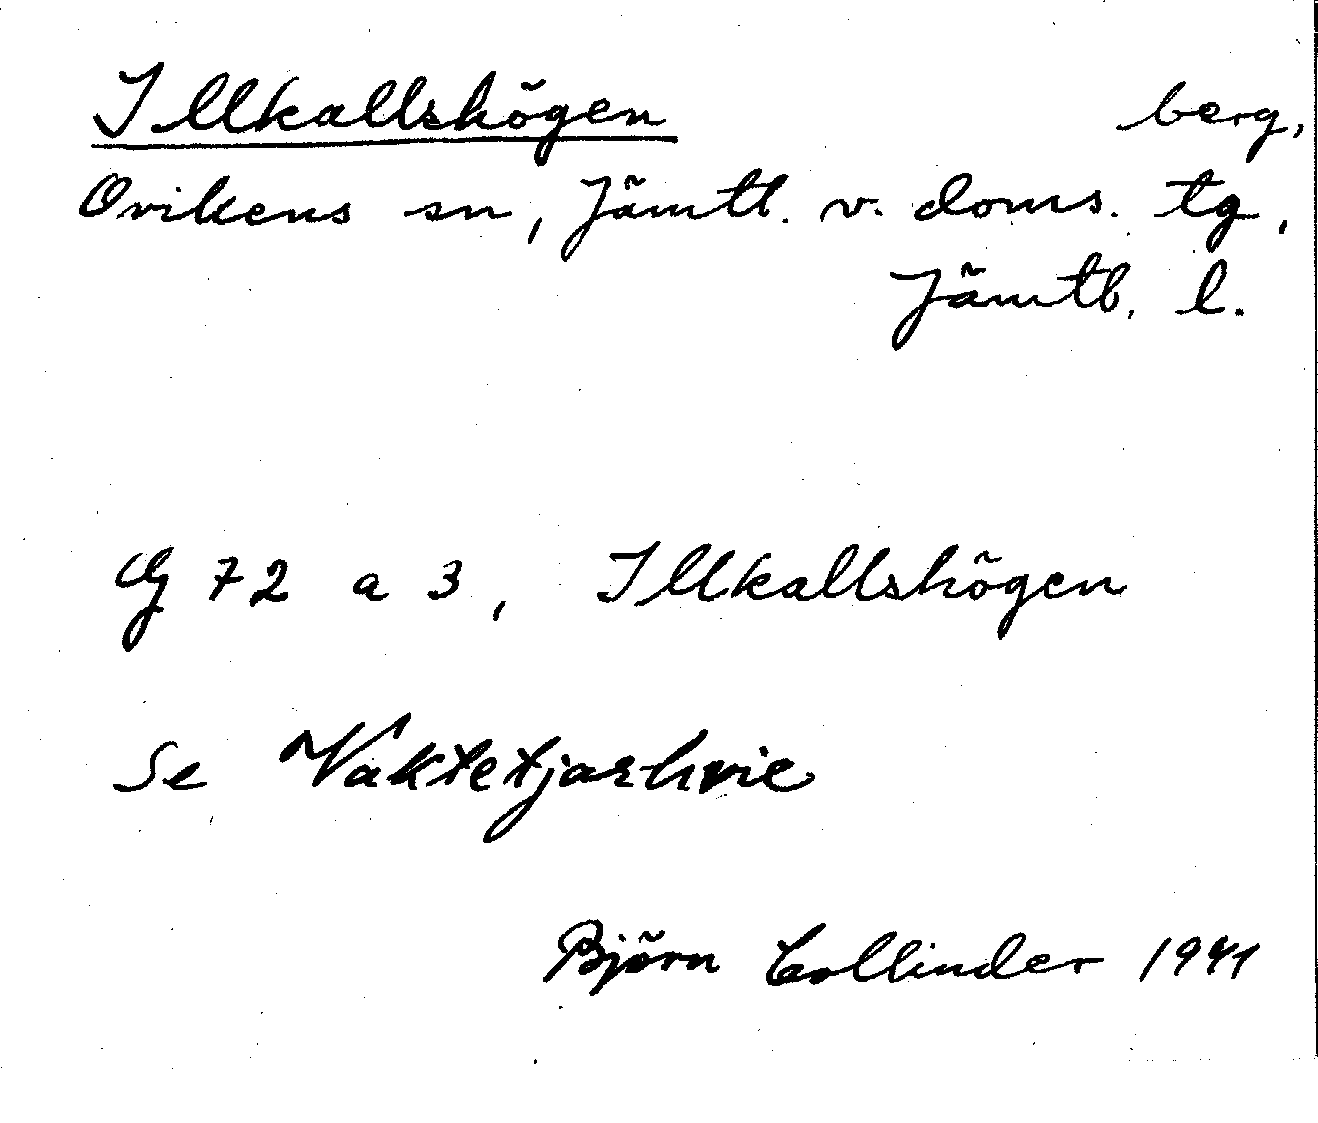 Illkallshögen berg,
Ovikens sn, Jämtl. v. doms. tg,
Jämtl. l.
G 72 a 3, Illkallshögen
Se Vaktetjarhvie
Björn Collinder 1941